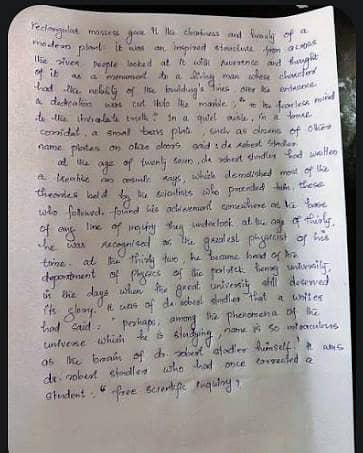 rectangular masses gave it the clearness and beauty of a
modern plant. it was an inspired structure. from across
the river, people looked at it with reverence and thought
of it as a monument to a living man whose character
had the nobility of the building's lines. over the entrance
a dedication was cut into the marble; " to the fearless mind
to the inviolate truth." in a quiet aisle, in a bare
corridor, a small brass plate, such as dozens of other
name plates on other doors said: dr. robert stadler.
at the age of twenty seven, dr. robert stadler had written
a treatise on cosmic rays, which demolished most of the
theories held by the scientists who preceded him. those
who followed, found his achievement somewhere at the base
of any line of inquiry they undertook. at the age of thirty,
he was recognised as the greatest physicist of his
time. at the thirty two, he became head of the
department of physics of the patrick henry university,
in the days when the great university still deserved
its glory. it was of dr. robert stadler that a writer
had said: " perhaps, among the phenomena of the
universe which he is studying, none is so miraculous
as the brain of dr. robert stadler himself." it was
dr. robert stadler who had once corrected a
student: " free scientific inquiry?